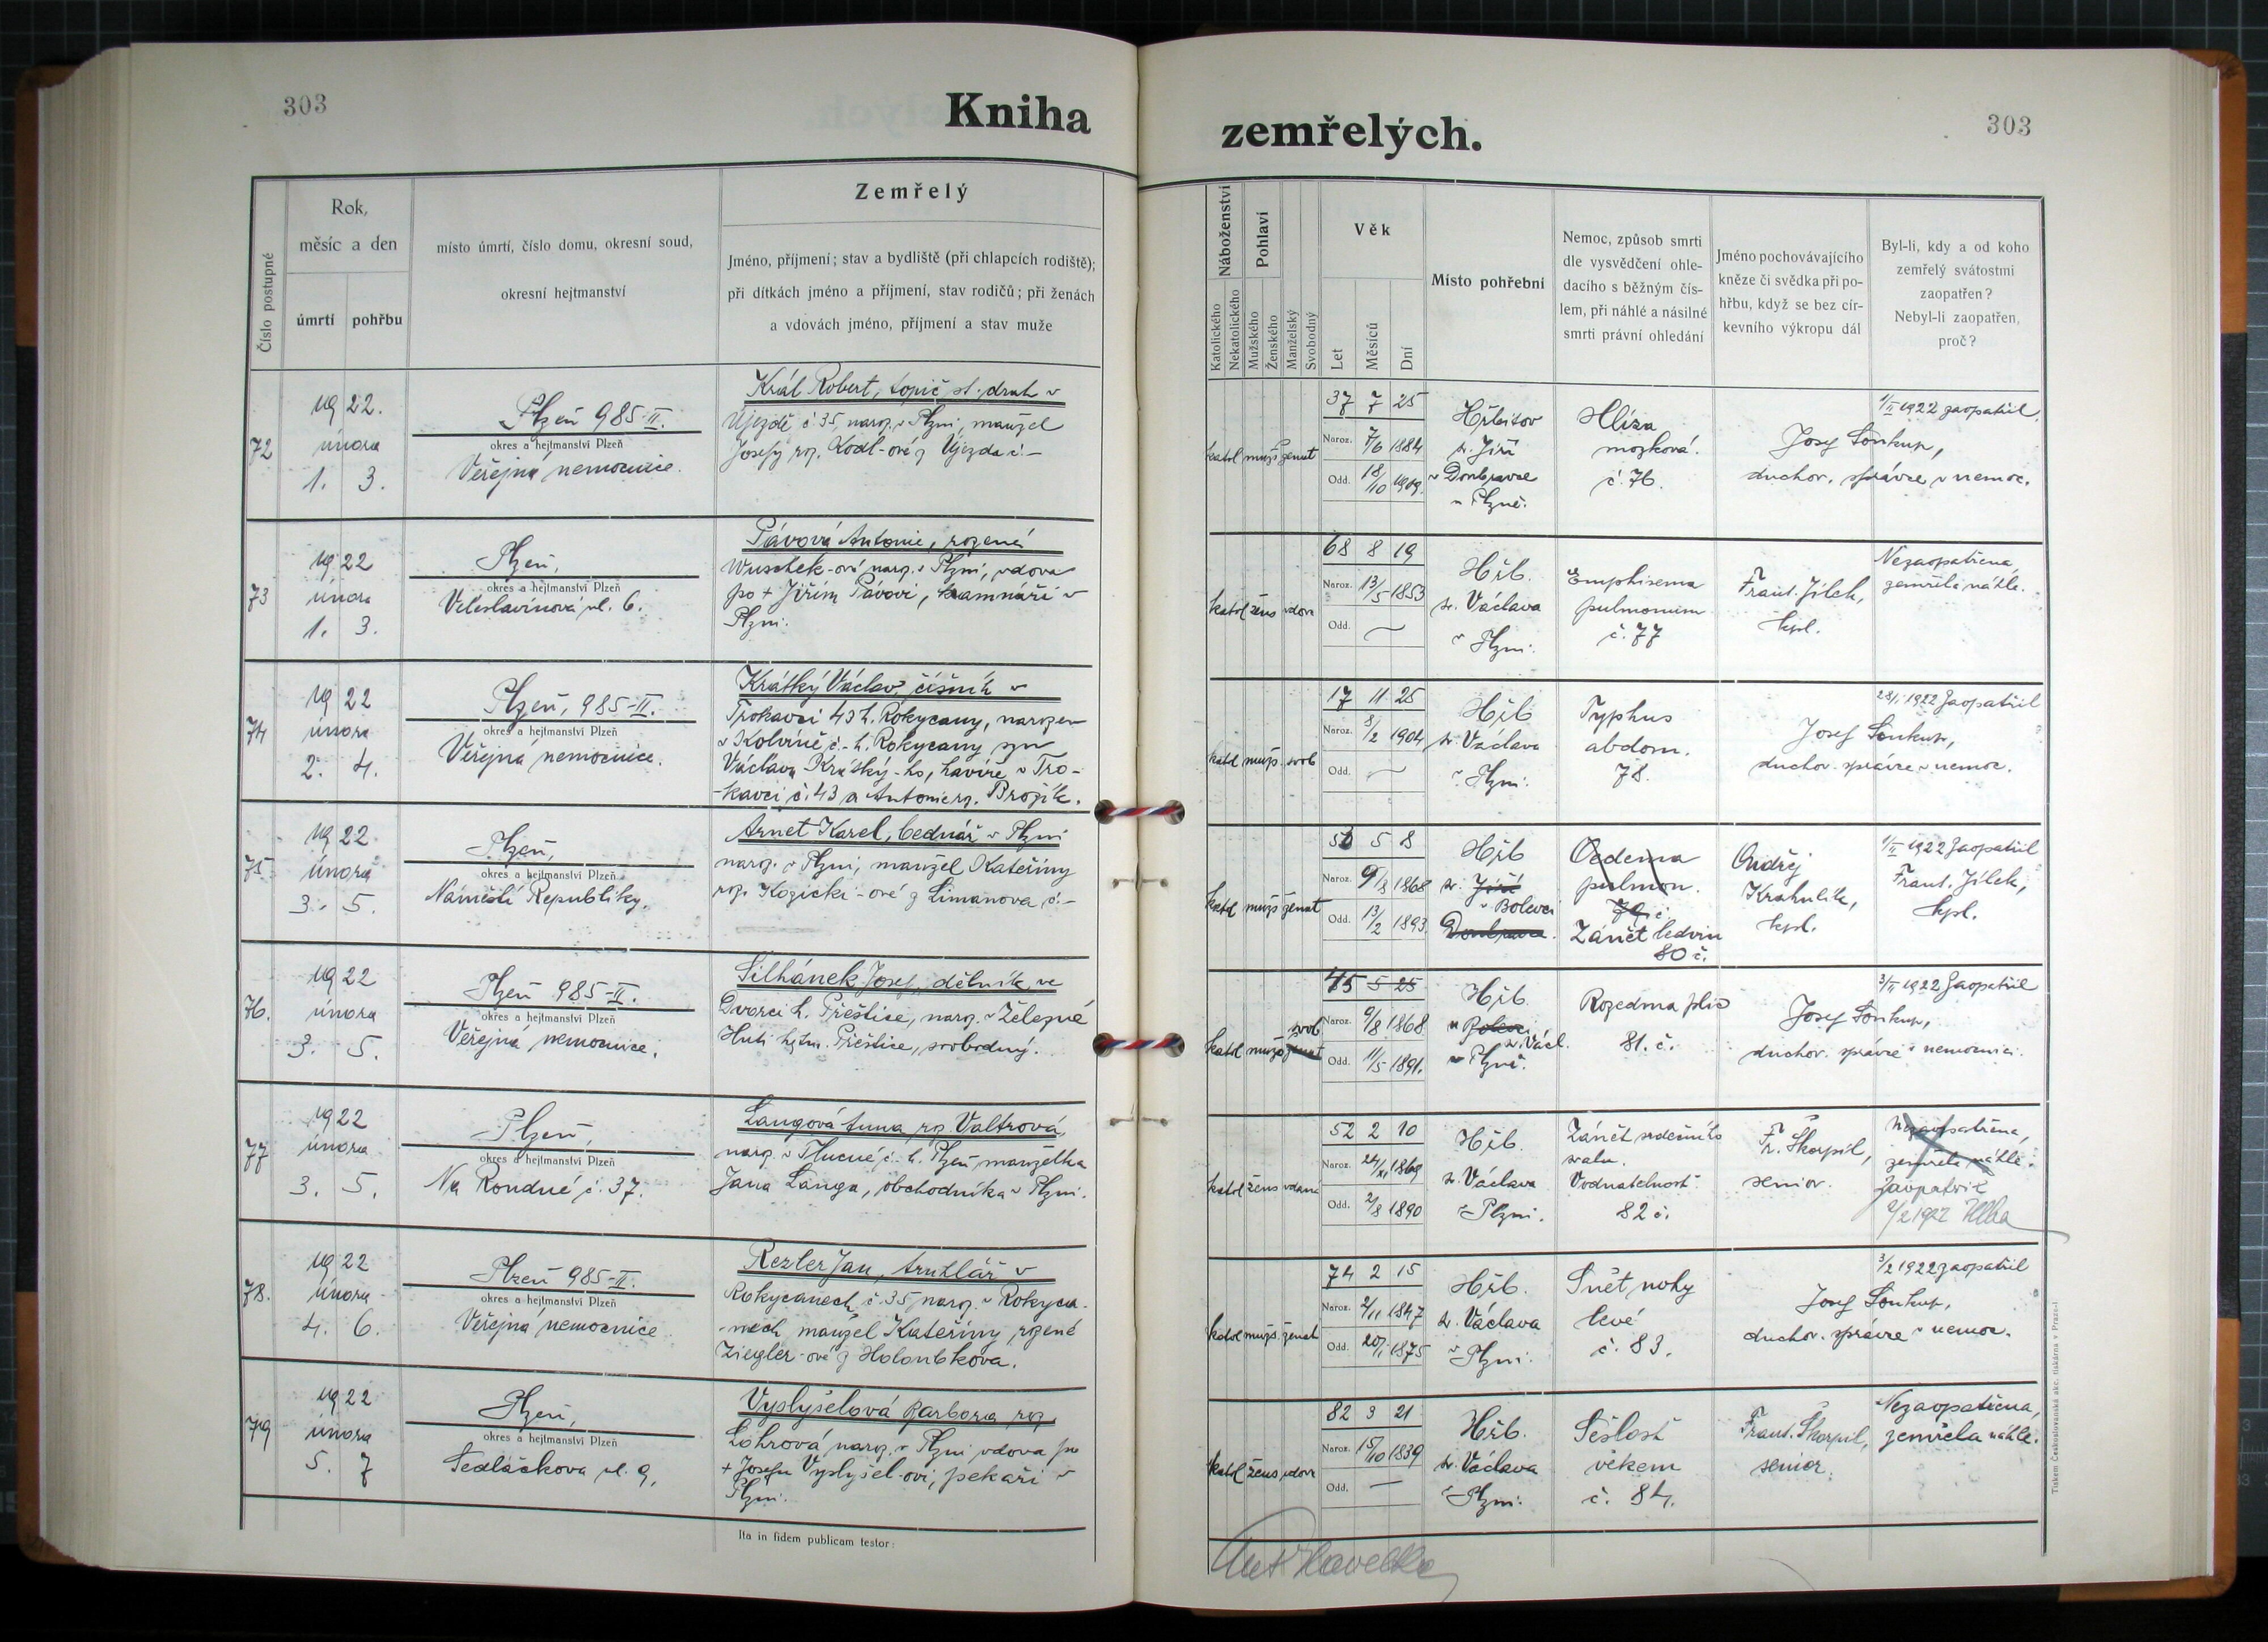 303
Kniha
zemřelých.
303
Číslo postupné
Rok,
měsíc a den
úmrtí
pohřbu
místo úmrtí, číslo domu, okresní soud,
okresní hejtmanství
Zemřelý
Jméno, příjmení; stav a bydliště (při chlapcích rodiště);
při dítkách jméno a příjmení, stav rodičů; při ženách
a vdovách jméno, příjmení a stav muže
Náboženství
Katolického
Nekatolického
Pohlaví
Mužského
Ženského
Manželský
Svobodný
Věk
Let
Měsíců
Dní
Místo pohřební
Nemoc, způsob smrti
dle vysvědčení ohle-
dacího s běžným čís-
lem, při náhlé a násilné
smrti právní ohledání
Jméno pochovávajícího
kněze či svědka při po-
hřbu, když se bez cír-
kevního výkropu dál
Byl-li, kdy a od koho
zemřelý svátostmi
zaopatřen?
Nebyl-li zaopatřen,
proč?
72
1922.
února
1. 3.
Plzeň 985-II.
okres a hejtmanství Plzeň
Veřejná nemocnice.
Král Robert, topič st. drah v
Újezdě č 35, naroz. v Plzni, manžel
Josefy roz. Kodl-ové z Újezda č. –
katol muž ženat
37 7 25
Naroz. 7/6 1884
Odd. 18/10 1909.
Hřbitov
sv. Jiří
v Doubravce
u Plzně.
Hlíza
mozková.
č. 76.
1/II 1922 zaopatřil
Josef Soukup,
duchov. správce v nemoc.
73
1922
února
1. 3.
Plzeň,
okres a hejtmanství Plzeň
Veleslavínova ul. 6.
Pávová Antonie, rozená
Wuschek-ová naroz. v Plzni, vdova
po + Jiřím Pávovi, kamnáři v
Plzni.
katol žens vdova
68 8 19
Naroz. 13/5 1853
Odd. —
Hřb.
sv. Václava
v Plzni.
Emphisema
pulmonum
č. 77
Frant. Jílek,
kpl.
Nezaopatřena,
zemřela náhle.
74
1922
února
2. 4.
Plzeň, 985-II.
okres a hejtmanství Plzeň
Veřejná nemocnice.
Krátký Václav, číšník v
Trokavci 43 h. Rokycany, narozen
v Kolvíně č.- h. Rokycany syn
Václava Krátký-ho, havíře v Tro-
-kavci č. 43 a Antonie roz. Brožík.
katol muž. svob
17 11 25
Naroz. 8/2 1904
Odd. —
Hřb
sv. Václava
v Plzni.
Typhus
abdom.
78.
28/I. 1922 Zaopatřil
Josef Soukup,
duchov. správce v nemoc.
75
1922
února
3. 5.
Plzeň,
okres a hejtmanství Plzeň
Náměstí Republiky.
Arnet Karel, bednář v Plzni
naroz. v Plzni, manžel Kateřiny
roz. Kozicki-ové z Limanova č.–
katol muž ženat
5 8
Naroz. 9/8 1868
Odd. 13/2 1893.
Hřb
sv. Jiří
v Bolevci
Doubravce.
Oedema
pulmon.
79 č.
Zánět ledvin
80 č.
Ondřej
Krahulík,
kpl.
1/II 1922 Zaopatřil
Frant. Jílek,
kpl.
76.
1922
února
3. 5.
Plzeň 985-II.
okres a hejtmanství Plzeň
Veřejná nemocnice.
Silhánek Josef, dělník ve
Dvorci h. Přeštice, naroz. v Železné
Huti hejtm. Přeštice, svobodný.
katol muž ženat
svob
45 5 25
Naroz. 9/8 1868
Odd. 11/5 1891.
Hřb.
v Bolevci
sv. Václ.
v Plzně.
Rozedma plic
81. č.
3/II 1922 Zaopatřil
Josef Soukup,
duchov. správce v nemocnici.
77
1922
února
3. 5.
Plzeň,
okres a hejtmanství Plzeň
Na Roudné č. 37.
Langová Anna roz. Valtrová,
naroz. v Tlucné č. h. Plzeň manželka
Jana Langa, obchodníka v Plzni.
katol žens vdaná
52 2 10
Naroz. 24/XI 1869
Odd. 2/8 1890
Hřb.
sv. Václava
v Plzni.
Zánět srdečního
svalu.
Vodnatelnost.
82 č.
Fr. Škorpil,
senior.
Nezaopatřena,
zemřela náhle.
Zaopatřil
2/2 1922
78.
1922
února
4. 6.
Plzeň 985-II.
okres a hejtmanství Plzeň
Veřejná nemocnice
Rezler Jan, truhlář v
Rokycanech č. 35 naroz. v Rokyca-
-nech manžel Kateřiny, rozené
Ziegler-ové z Holoubkova.
katol muž. ženat
74 2 15
Naroz. 2/11 1847
Odd. 20/I. 1875
Hřb.
sv. Václava
v Plzni.
Snět nohy
levé
č. 83.
3/2 1922 zaopatřil
Josef Soukup,
duchov. správce v nemoc.
79
1922
února
5. 7
Plzeň,
okres a hejtmanství Plzeň
Sedláčkova ul. 9,
Vyslyšelová Barbora roz.
Lohrová naroz. v Plzni vdova po
+ Josefu Vyslyšel-ovi, pekaři v
Plzni.
katol žens vdova
82 3 21
Naroz. 15/10 1839
Odd. —
Hřb.
sv. Václava
v Plzni.
Sešlost
věkem
č. 84.
Frant. Škorpil,
senior.
Nezaopatřena,
zemřela náhle.
Ita in fidem publicam testor:
Ant. Havelka
Tiskem Českoslovanská akc. tiskárna v Praze-I